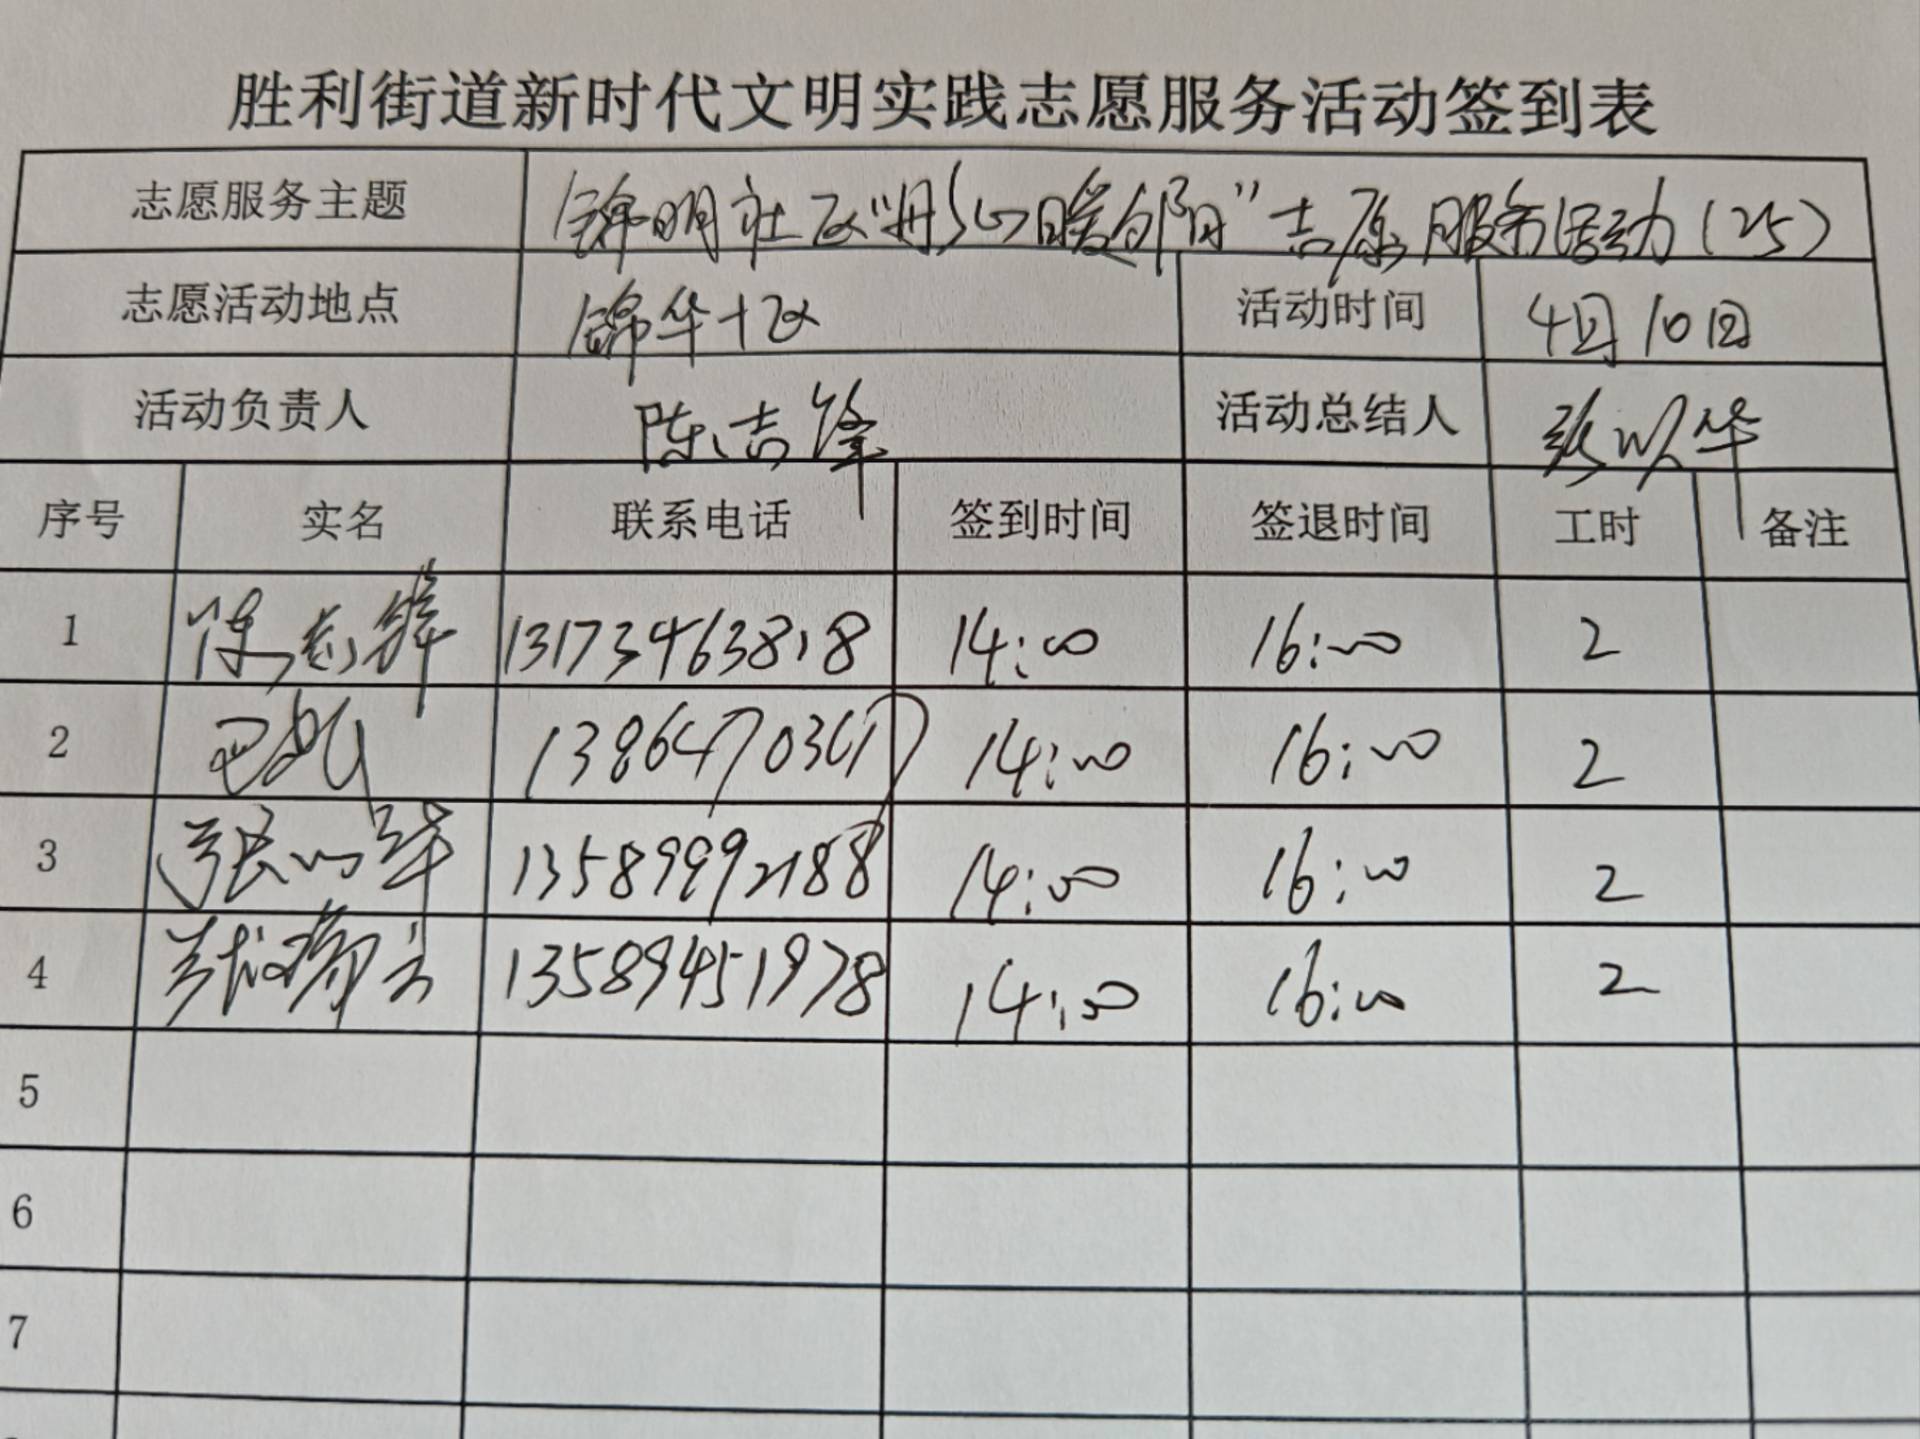 胜利街道新时代文明实践志愿服务活动签到表
志愿服务主题 锦明社区“丹心暖夕阳”志愿服务活动(25)
志愿活动地点 锦华十区 活动时间 4月10日
活动负责人 陈志锋 活动总结人 张以华
序号 实名 联系电话 签到时间 签退时间 工时 备注
1 陈志锋 13173463818 14:00 16:00 2
2 14:00 16:00 2
3 张以华 13589992188 14:00 16:00 2
4 13589451978 14:00 16:00 2
5
6
7